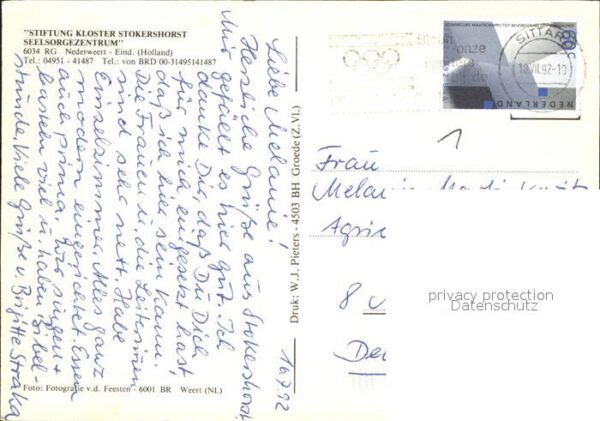 "STIFTUNG KLOSTER STOKERSHORST
SEELSORGEZENTRUM"
6034 RG Nederweert - Eind. (Holland)
Tel.: 04951 - 41487 Tel.: von BRD 00-31495141487
16.7.92
Liebe Melanie!
Herzliche Grüße aus Stokershorst.
Mir gefällt es hier gut. Ich
danke Dir, daß Du Dich
für mich eingesetzt hast,
daß ich hier sein kann.
Die Frauen u. die Leiterinnen
sind sehr nett. Habe
Einzelzimmer. Alles ganz
modern eingerichtet. Essen
auch prima. Wir singen +
basteln viel u. haben Bibel-
stunde. Viele Grüße v. Brigitte Straka
Foto: Fotografie v.d. Feesten - 6001 BR Weert (NL)
Druk: W.J. Pieters - 4503 BH Groede (Z.Vl.)
SITTARD
10.VII.92-19
60c
NEDERLAND
onze
de
1
Frau
Melanie
8
privacy protection
Datenschutz